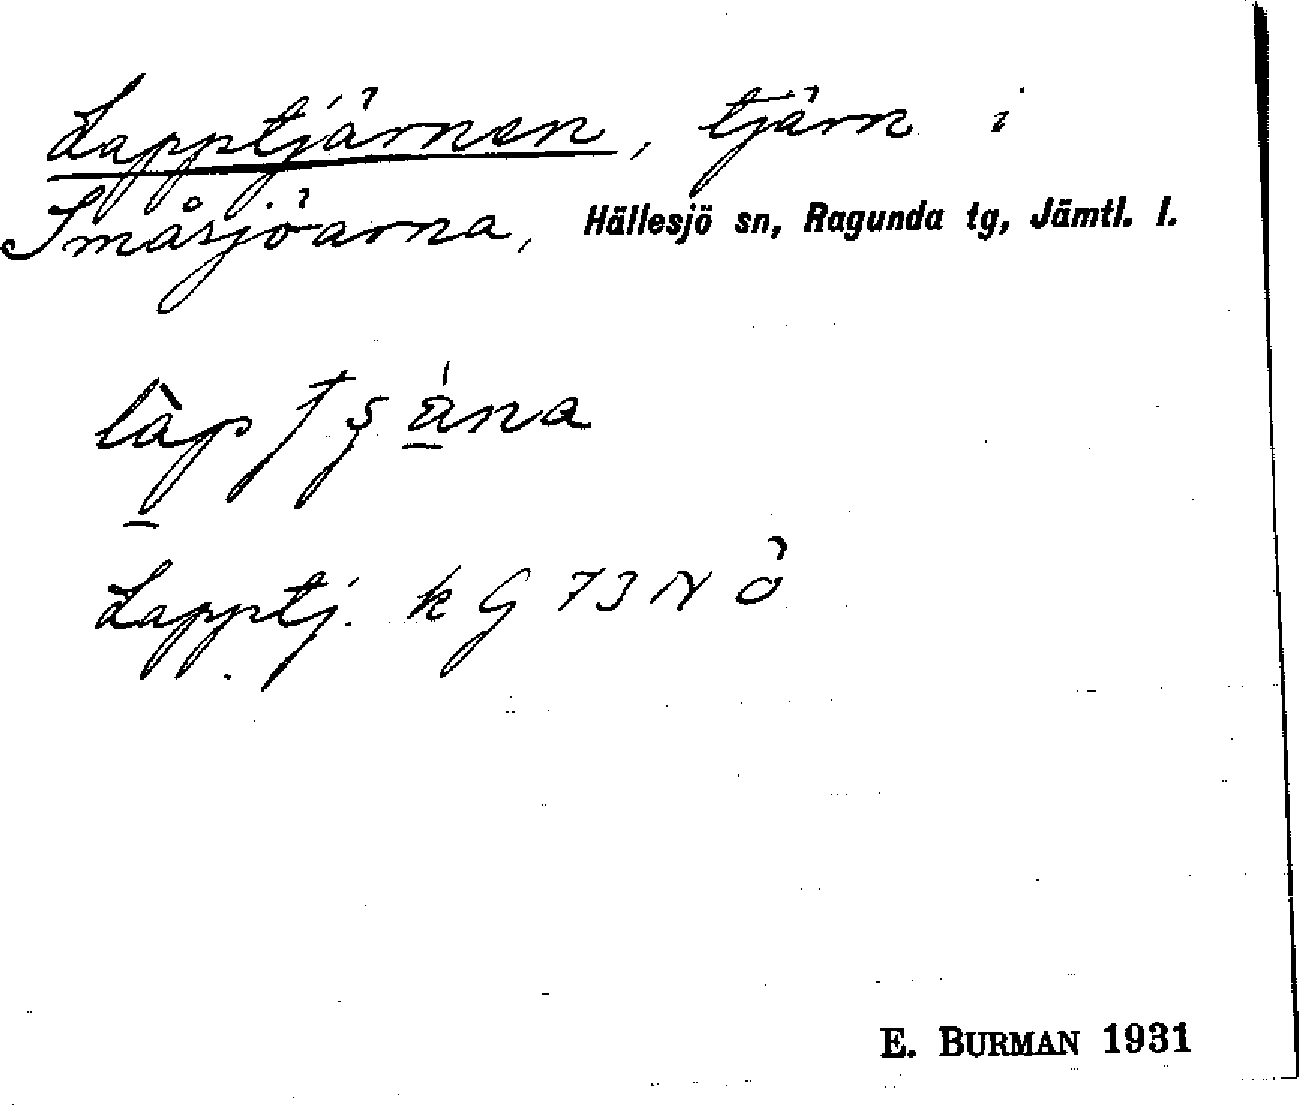 Lapptjärnen, tjärn i
Småsjöarna, Hällesjö sn, Ragunda tg, Jämtl. l.
Lapptj. kG 73 NÖ
E. BURMAN 1931